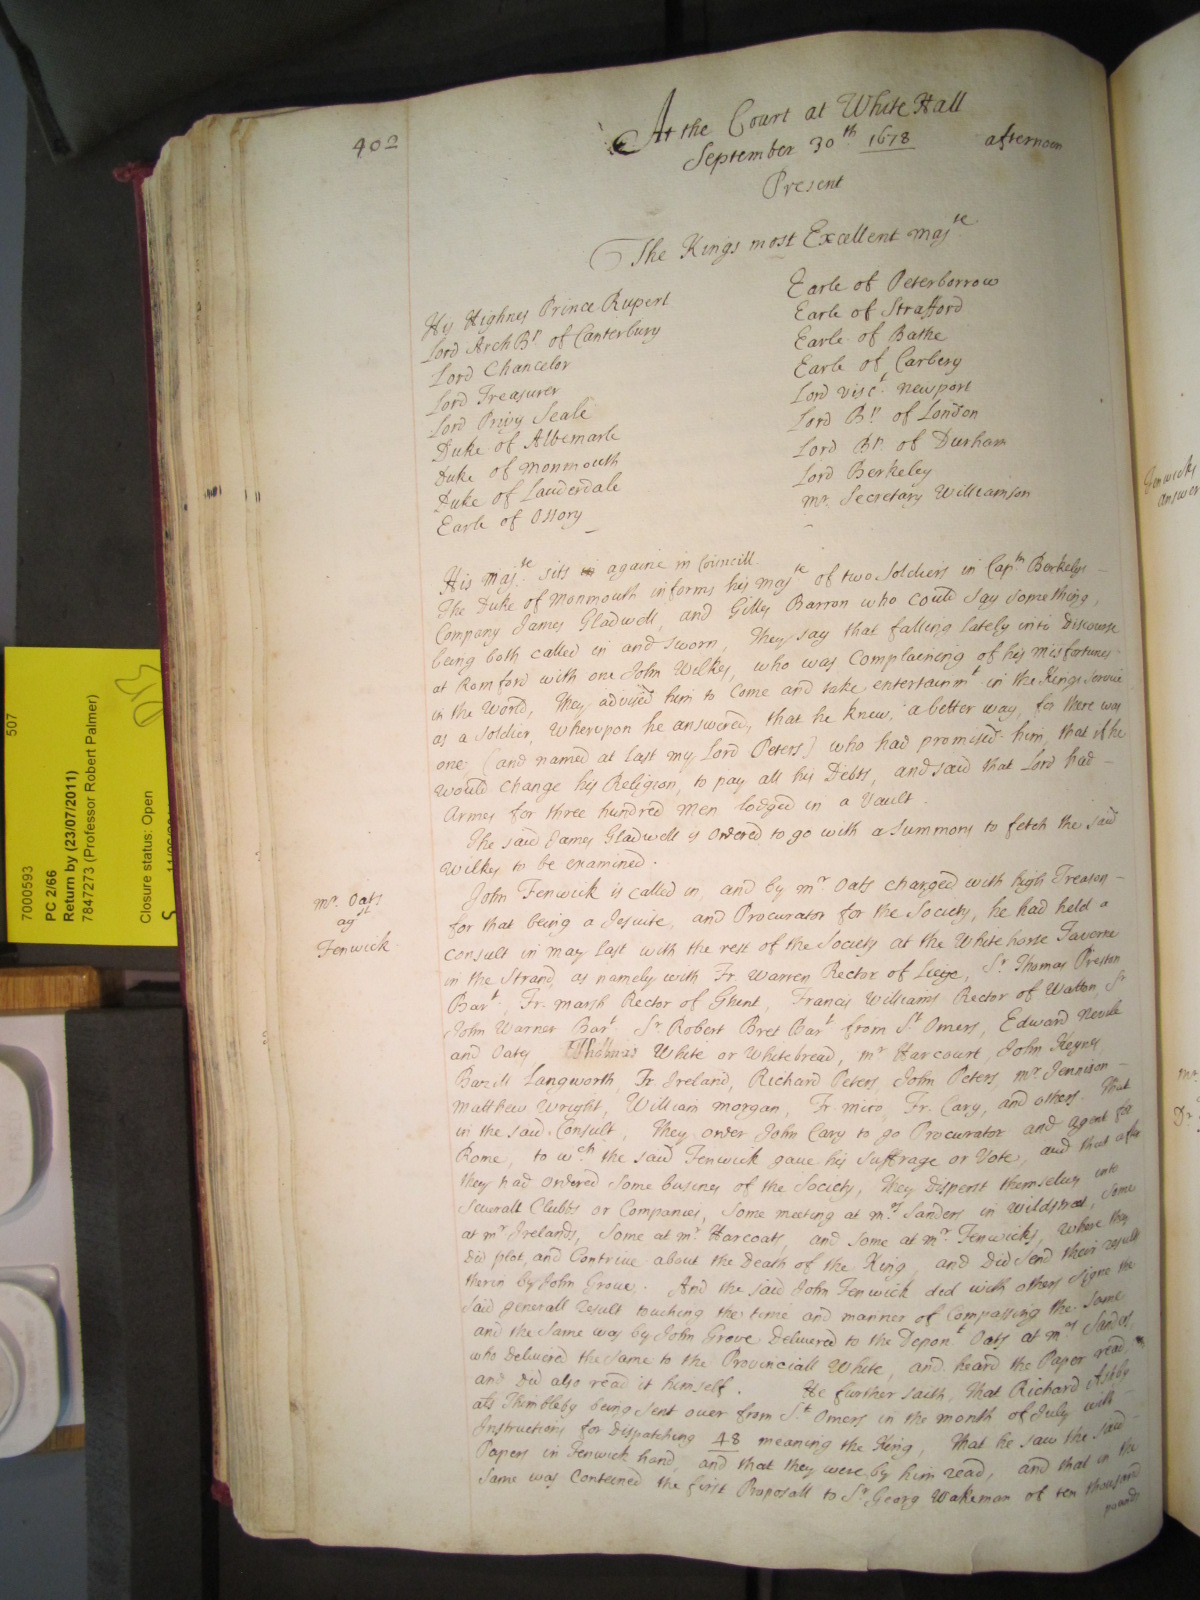 402
At the Court at White Hall
September 30th 1678 afternoon
Present
The Kings most Excellent Majte
His Highnes Prince Rupert
Lord ArchBp of Canterbury
Lord Chancelor
Lord Treasurer
Lord Privy Seale
Duke of Albemarle
Duke of Monmouth
Duke of Lauderdale
Earle of Ossory
Earle of Peterborrow
Earle of Strafford
Earle of Bathe
Earle of Carbery
Lord Visct. Newport
Lord Bp of London
Lord Bp of Durham
Lord Berkeley
Mr. Secretary Williamson
His Majte sits againe in Councill.
The Duke of Monmouth informs his Majte of two Soldiers in Captn Berkelys
Company James Gladwell, and Gilly Barron who could say something,
being both called in and sworn, They say that falling lately into discourse
at Romford with one John Wilkes, who was Complaining of his misfortunes
in the World, They advised him to Come and take entertainmt in the Kings Service
as a Soldier, Wherupon he answered, that he knew, a better way, for there was
one (and named at last my Lord Peters) who had promised him, that if he
would Change his Religion, to pay all his Debts, and said that Lord had
Armes for three hundred men lodged in a Vault.
The said James Gladwell is ordered to go with a Summons to fetch the said
Wilkes to be examined.
Mr. Oats
agst
Fenwick
John Fenwick is called in, and by Mr Oats charged with high Treason
for that being a Jesuite, and Procurator for the Society, he had held a
consult in may last with the rest of the Society at the Whitehorse Taverne
in the Strand, as namely with Fr. Warren Rector of Liege, Sr Thomas Preston
Bart, Fr. Marsh Rector of Ghent, Francis Williams Rector of Watton, Sr
John Warner Bart. Sr Robert Bret Bart from St Omers, Edward Nevile
and Oates, Thomas White or Whitebread, Mr Harcourt, John Keynes,
Bazill Langworth, Fr. Ireland, Richard Peters, John Peters, Mr Jennison
Matthew Wright, William Morgan, Fr. Mico, Fr. Cary, and others. That
in the said Consult, They order John Cary to go Procurator and agent for
Rome, to wch the said Fenwick gave his suffrage or Vote, and that after
they had ordered some busines of the Society, They disperst themselves into
Severall Clubbs or Companies, Some meeting at Mrs Sanders in Wildstreet, some
at Mr Irelands, Some at Mr. Harcoats, and some at Mr. Fenwicks, where they
did plot, and Contrive about the Death of the King, and did send their result
therin by John Grove. And the said John Fenwick did with others signe the
said generall result touching the time and manner of Compassing the same
and the Same was by John Grove Delivered to the Depont Oats at Mrs Sandrs,
who delivered the same to the Provinciall White, and heard the Paper read,
and did also read it himself. He further saith, That Richard Ashby
als Thimbleby being sent over from St Omers in the month of July with
Instructions for dispatching 48 meaning the King, That he saw the said
Papers in Fenwick hand, and that they were by him read, and that in the
same was Conteened the first Proposall to Sr Georg Wakeman of ten thousand
pounds
Fenwicks
answer
507
7000593
PC 2/66
Return by (23/07/2011)
7847273 (Professor Robert Palmer)
Closure status: Open